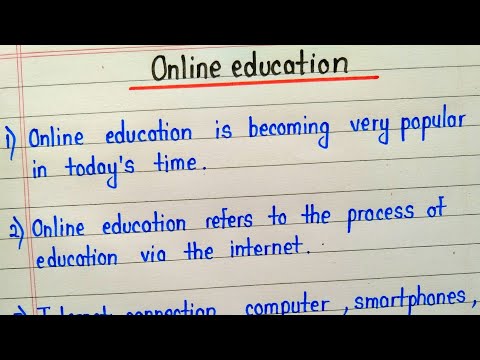 Online education
1) Online education is becoming very popular
in today's time.
2) Online education refers to the process of
education via the internet.
connection, computer, smartphones,